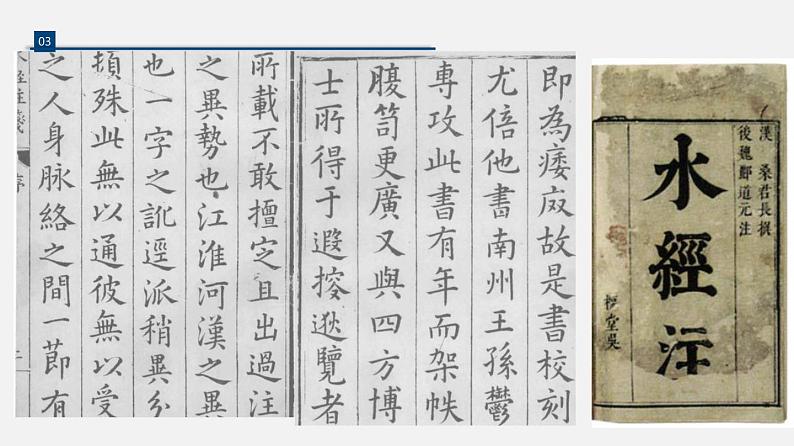 03
所載不敢擅㝎且出過注
之異勢也江淮河漢之異
也一字之訛逕派稍異分
頓殊此無以通彼無以受
之人身脈絡之間一節有
水經注箋 序
即為痿故是書校刻
尤倍他書南州王孫鬱
專攻此書有年而架帙
腹笥更廣又與四方博
士所得于遐搜逖覽者
漢 桑君長撰
後魏酈道元注
水經注
堂吳